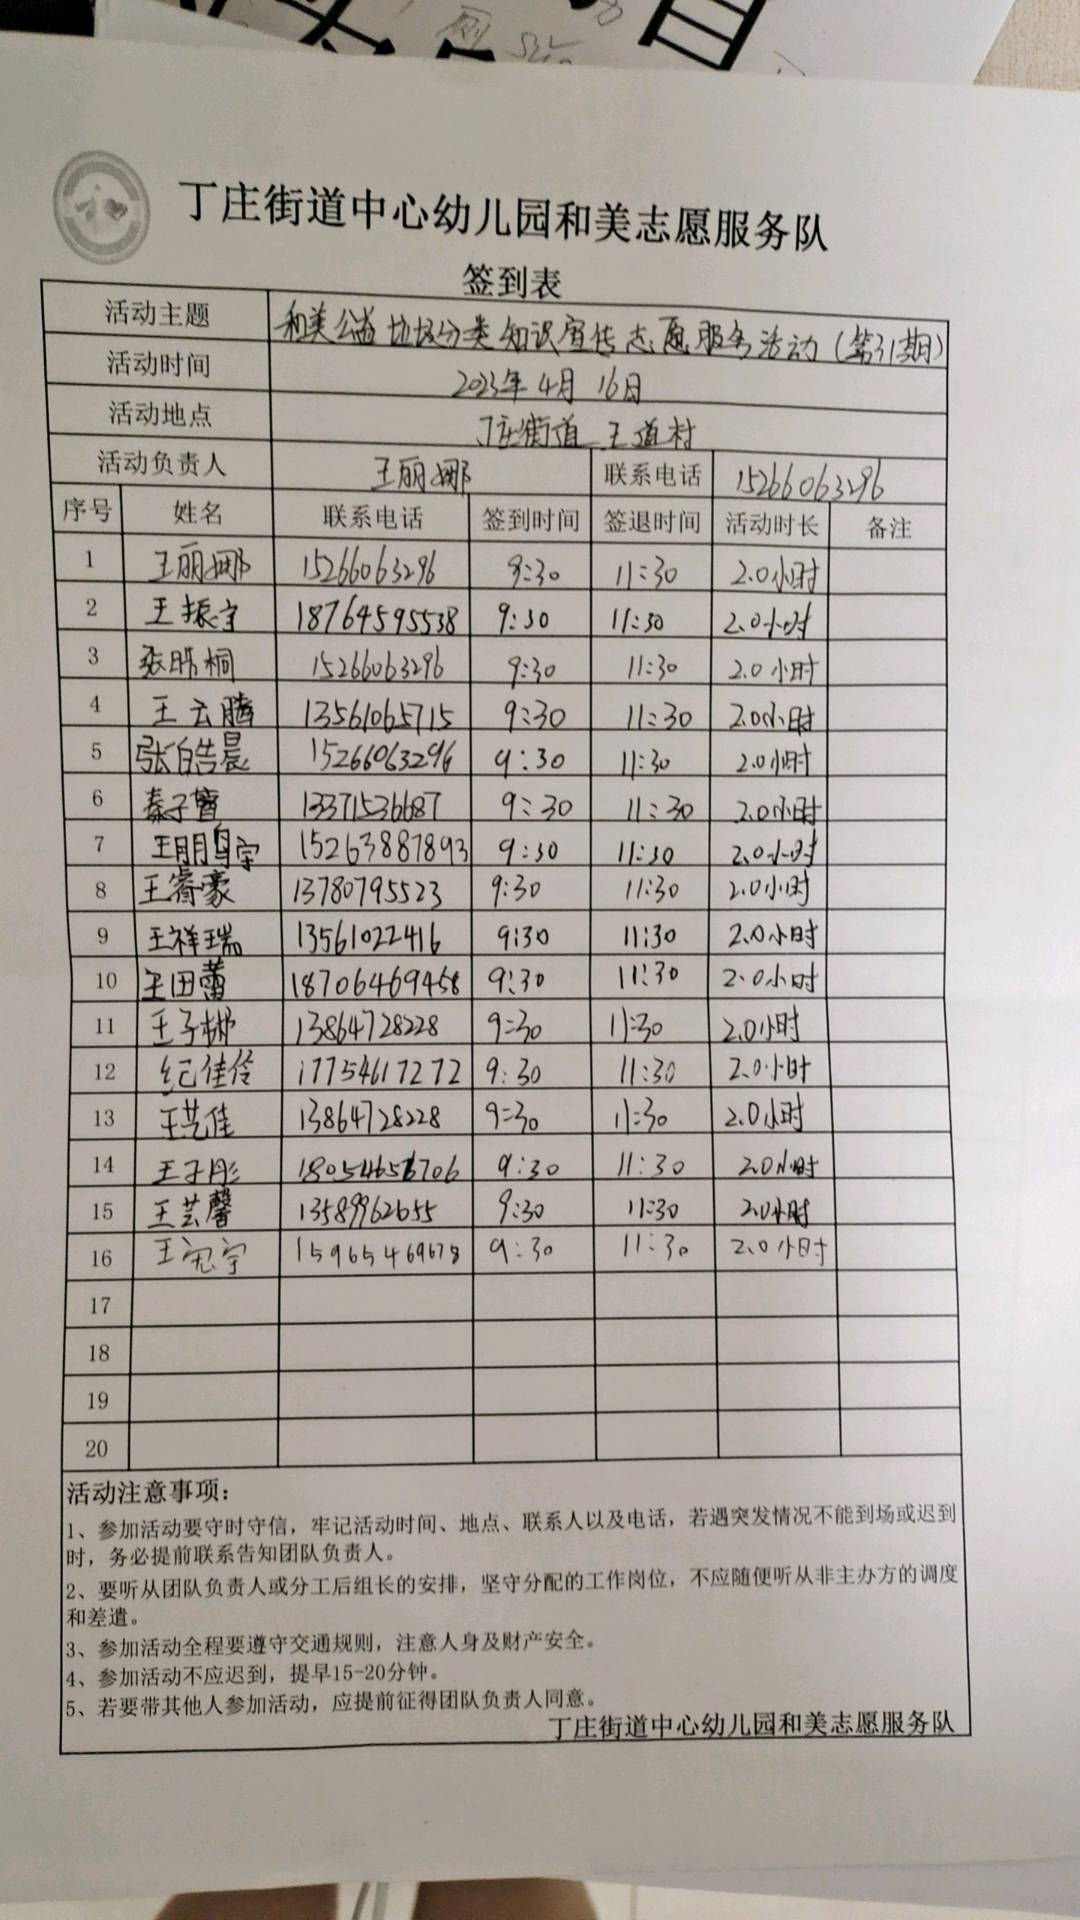 丁庄街道中心幼儿园和美志愿服务队
签到表
活动主题 和美公益垃圾分类知识宣传志愿服务活动(第31期)
活动时间 2023年4月16日
活动地点 丁庄街道 王道村
活动负责人 王丽娜 联系电话 15266063296
序号 姓名 联系电话 签到时间 签退时间 活动时长 备注
1 王丽娜 15266063296 9:30 11:30 2.0小时
2 王振宇 18764595538 9:30 11:30 2.0小时
3 张晞桐 15266063296 9:30 11:30 2.0小时
4 王云腾 13561065715 9:30 11:30 2.0小时
5 张皓晨 15266063296 9:30 11:30 2.0小时
6 秦子萱 13371536687 9:30 11:30 2.0小时
7 王鹏宇 15263887893 9:30 11:30 2.0小时
8 王睿豪 13780795523 9:30 11:30 2.0小时
9 王祥瑞 13561022416 9:30 11:30 2.0小时
10 王田蕾 18706469458 9:30 11:30 2.0小时
11 王子彬 13864728228 9:30 11:30 2.0小时
12 纪佳伶 17754617272 9:30 11:30 2.0小时
13 王艺佳 13864728228 9:30 11:30 2.0小时
14 王子彤 9:30 11:30 2.0小时
15 王芸馨 13589962655 9:30 11:30 2.0小时
16 15965469678 9:30 11:30 2.0小时
17
18
19
20
活动注意事项:
1、参加活动要守时守信,牢记活动时间、地点、联系人以及电话,若遇突发情况不能到场或迟到
时,务必提前联系告知团队负责人。
2、要听从团队负责人或分工后组长的安排,坚守分配的工作岗位,不应随便听从非主办方的调度
和差遣。
3、参加活动全程要遵守交通规则,注意人身及财产安全。
4、参加活动不应迟到,提早15-20分钟。
5、若要带其他人参加活动,应提前征得团队负责人同意。
丁庄街道中心幼儿园和美志愿服务队